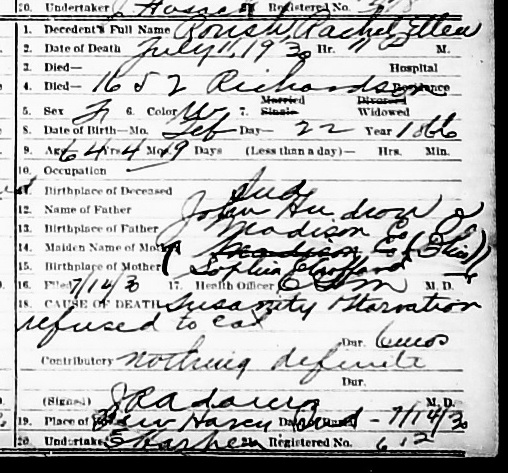 20. Undertaker Registered No.
1. Decedent's Full Name Parish Rachel Ellen
2. Date of Death July 11, 1930 Hr. M.
3. Died— Hospital
4. Died— 1652 Richardson Residence
5. Sex F 6. Color W 7. Married Single Divorced Widowed
8. Date of Birth—Mo. Feb Day— 22 Year 1866
9. Age 64 Yrs 4 Mos. 19 Days (Less than a day)— Hrs. Min.
10. Occupation
11. Birthplace of Deceased Ind
12. Name of Father John
13. Birthplace of Father Madison Co O
14. Maiden Name of Mother Madison Co (Ohio)
15. Birthplace of Mother ( Sophia
16. Filed 7/14/30 17. Health Officer M. D.
18. CAUSE OF DEATH Insanity Starvation
refused to eat
Dur. 6 mos
Contributory nothing definite
Dur.
(Signed) J R Adams M. D.
19. Place of Burial New Haven Date Burial - 7/14/30
20. Undertaker Harper 21. Registered No. 612